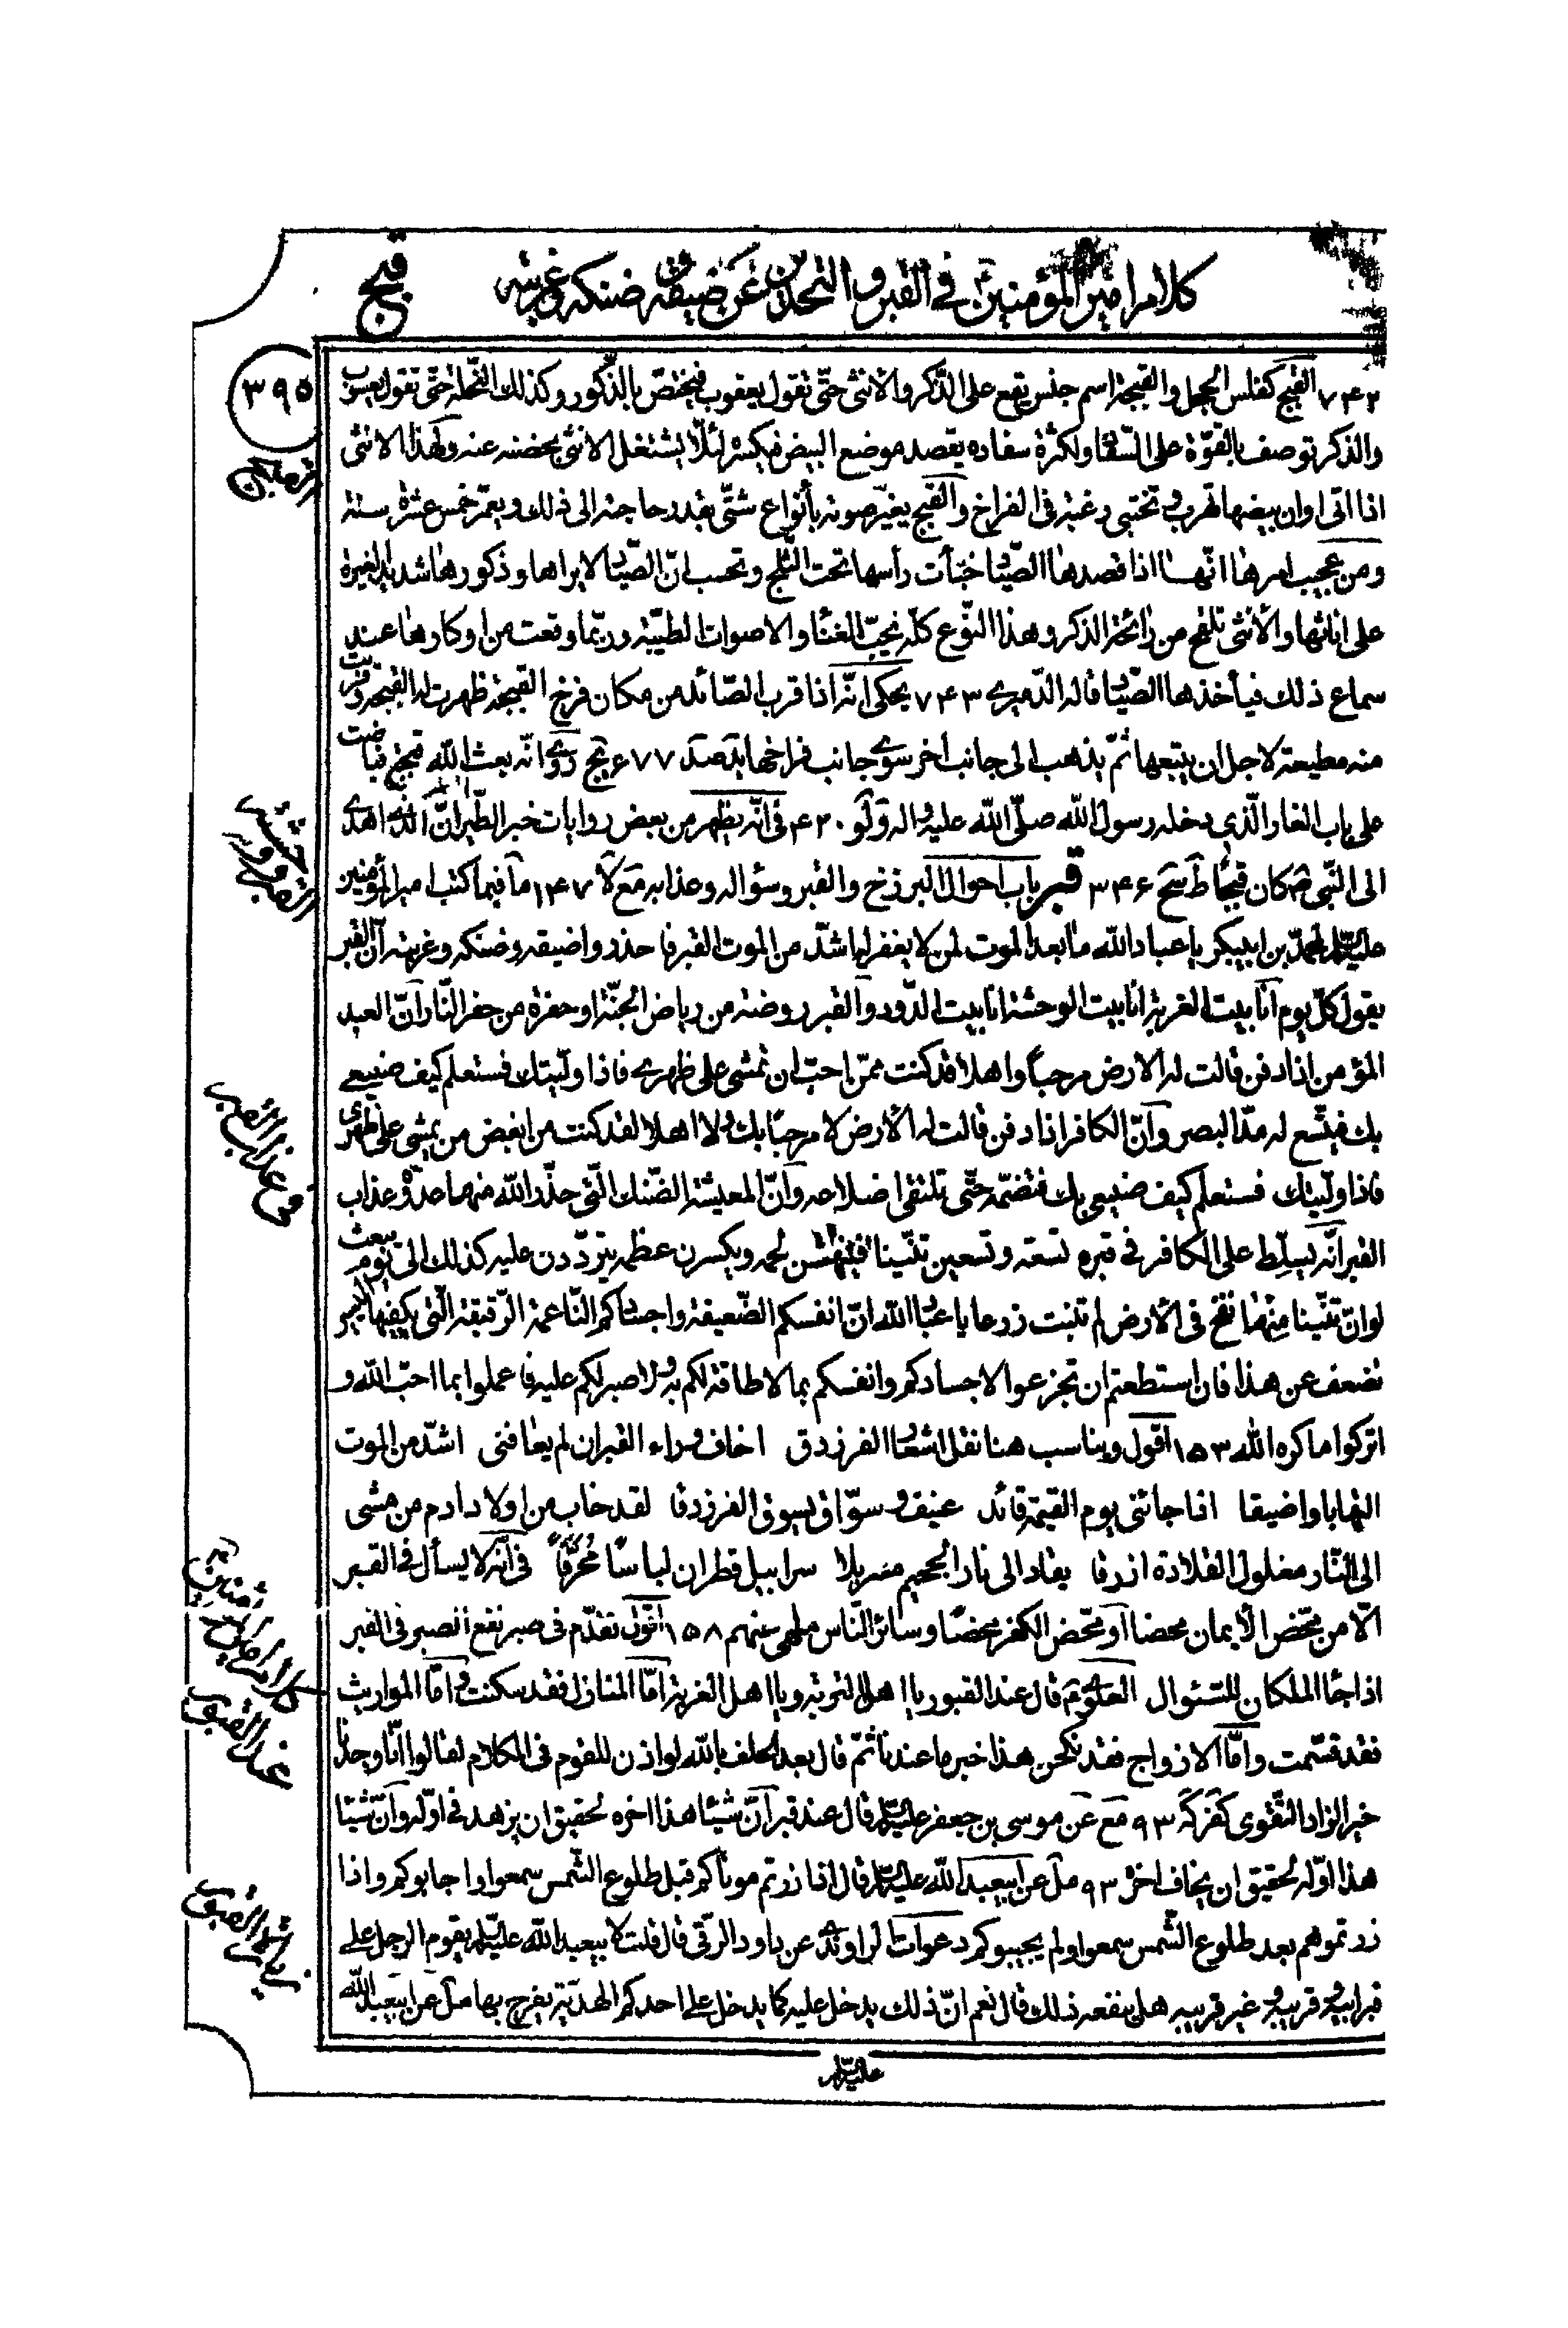 كلام امير المؤمنين في القبر والتحذير عن ضيقه وضنكه وغربته
قبج
٣٩٥
٧٤٢ القبج كفلس الحجل والقبجة اسم جنس يقع على الذّكر والأنثى حتّى تقول يعقوب فيختصّ بالذّكور وكذلك النّحلة حتّى تقول يعسوب
والذكر توصف بالقوّة على السّفاد ولكثرة سفاده يقصد موضع البيض فيكسره لئلّا يشتغل الانثى بحضنه عنه ولهذا الانثى
اذا اتى اوان بيضها تهرب وتختبى رغبة في الفراخ والقبج يغيّر صوته بأنواع شتّى بقدر حاجته الى ذلك ويعمّر خمس عشرة سنة
ومن عجيب امرها انّها اذا قصدها الصّيّاد خبّأت رأسها تحت الثّلج وتحسب انّ الصّيّاد لا يراها وذكورها شديد الغيرة
على اناثها والأنثى تلقح من رائحة الذكر وهذا النّوع كلّه يحبّ الغناء والاصوات الطيّبة وربّما وقعت من اوكارها عند
سماع ذلك فيأخذها الصّيّاد قاله الدّميرى ٧٤٣ يحكى انّه اذا قرب الصّائد من مكان فرخ القبجة ظهرت له القبجة وقربت
منه مطيعة لاجل ان يتبعها ثمّ يذهب الى جانب اخر سوى جانب فراخها يد صد ٦٧٧ يج روى انّه بعث الله قبجتين فباضت
على باب الغار الّذي دخله رسول الله صلّى الله عليه واله و لو ٤٢٠ فى انّه يظهر من بعض روايات خبر الطّير انّ الّذى اهدى
الى النّبي ص كان قبجًا ط سح ٣٤٦ قبر باب احوال البرزخ والقبر وسؤاله وعذابه مع لا ١٤٧ ما فيما كتب امير المؤمنين
عليه السّلام لمحمّد بن ابيبكر يا عباد الله ما بعد الموت لمن لا يغفر له اشدّ من الموت القبر فاحذروا ضيقه وضنكه وغربته انّ القبر
يقول كلّ يوم انا بيت الغربة انا بيت الوحشة انا بيت الدّود والقبر روضة من رياض الجنّة او حفرة من حفر النّار انّ العبد
المؤمن اذا دفن قالت له الارض مرحبًا واهلا قد كنت ممّن احبّ ان تمشى على ظهري فاذا ولّيتك فستعلم كيف صنيعي
بك فيتّسع له مدّ البصر وانّ الكافر اذا دفن قالت له الأرض لا مرحبًا بك ولا اهلا لقد كنت من ابغض من يمشى على ظهرى
فاذا ولّيتك فستعلم كيف صنيعى بك فتضمّه حتّى تلتقى اضلاعه وانّ المعيشة الضّنك الّتى حذّر الله منها عدوّه عذاب
القبر انّه يسلّط على الكافر في قبره تسعة وتسعين تنّينا فينهشن لحمه ويكسرن عظمه يتردّدن عليه كذلك الى يوم يبعث
لو انّ تنّينا منها نفخ فى الأرض لم تنبت زرعا يا عباد الله انّ انفسكم الضّعيفة واجسادكم النّاعمة الرّقيقة الّتى يكفيها اليسير
تضعف عن هذا فان استطعتم ان تجزعوا لاجسادكم وانفسكم بما لا طاقة لكم به ولا صبر لكم عليه فاعملوا بما احبّ الله و
اتركوا ما كره الله ١٥٣ اقول ويناسب هنا نقل اشعار الفرزدق اخاف وراء القبر ان لم يعافنى اشدّ من الموت
التهابا واضيقا اذا جائنى يوم القيمة قائد عنيف وسوّاق يسوق الفرزدقا لقد خاب من اولاد ادم من مشى
الى النّار مغلول القلادة ازرقا يقاد الى نار الجحيم مسربلا سرابيل قطران لباسًا مُحرّقًا فى انّه لا يسأل في القبر
الّا من محّض الأيمان محضا او محّض الكفر محضًا وسائر النّاس ملهى عنهم ١٥٨ اقول تقدّم فى صبر نفع الصبر فى القبر
اذا جاء الملكان للسّئوال العلوىّ ع قال عند القبور يا اهل التربة ويا اهل الغربة امّا المنازل فقد سكنت وامّا المواريث
فقد قسّمت وامّا الازواج فقد نكحن هذا خبر ما عندنا ثمّ قال بعد الحلف بالله لو اذن للقوم فى الكلام لقالوا انّا وجدنا
خير الزاد التّقوى كفر كه ٩٣ مع عن موسى بن جعفر عليه السّلام قال عند قبر انّ شيئا هذا اخره لحقيق ان يزهد فى اوّله وانّ شيئا
هذا اوّله لحقيق ان يخاف اخره ٩٣ مل عن ابيعبد الله عليه السّلام قال اذا زرتم موتاكم قبل طلوع الشّمس سمعوا واجابوكم واذا
زرتموهم بعد طلوع الشّمس سمعوا ولم يجيبوكم دعوات الراوندى عن داود الرّقى قال قلت لابيعبد الله عليه السّلام يقوم الرجل على
قبر ابيه وقريبه وغير قريبه هل ينفعه ذلك قال نعم انّ ذلك يدخل عليه كما يدخل على احدكم الهديّة يفرح بها مل عن ابيعبد الله
عليه السّلام